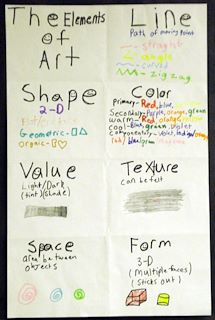 The Elements
of
Art
Line
Path of moving point
straight
curved
zig zag
Shape
2-D
Geometric-
organic-
Color
Primary-Red, blue,
Secondary-Purple, orange, green
warm-Red, orange,
cool-Blue, green, violet
Value
Light/Dark
(tint)(Shade)
Texture
can be felt
Space
area between
objects
Form
3-D
(multiple faces)
(sticks out)